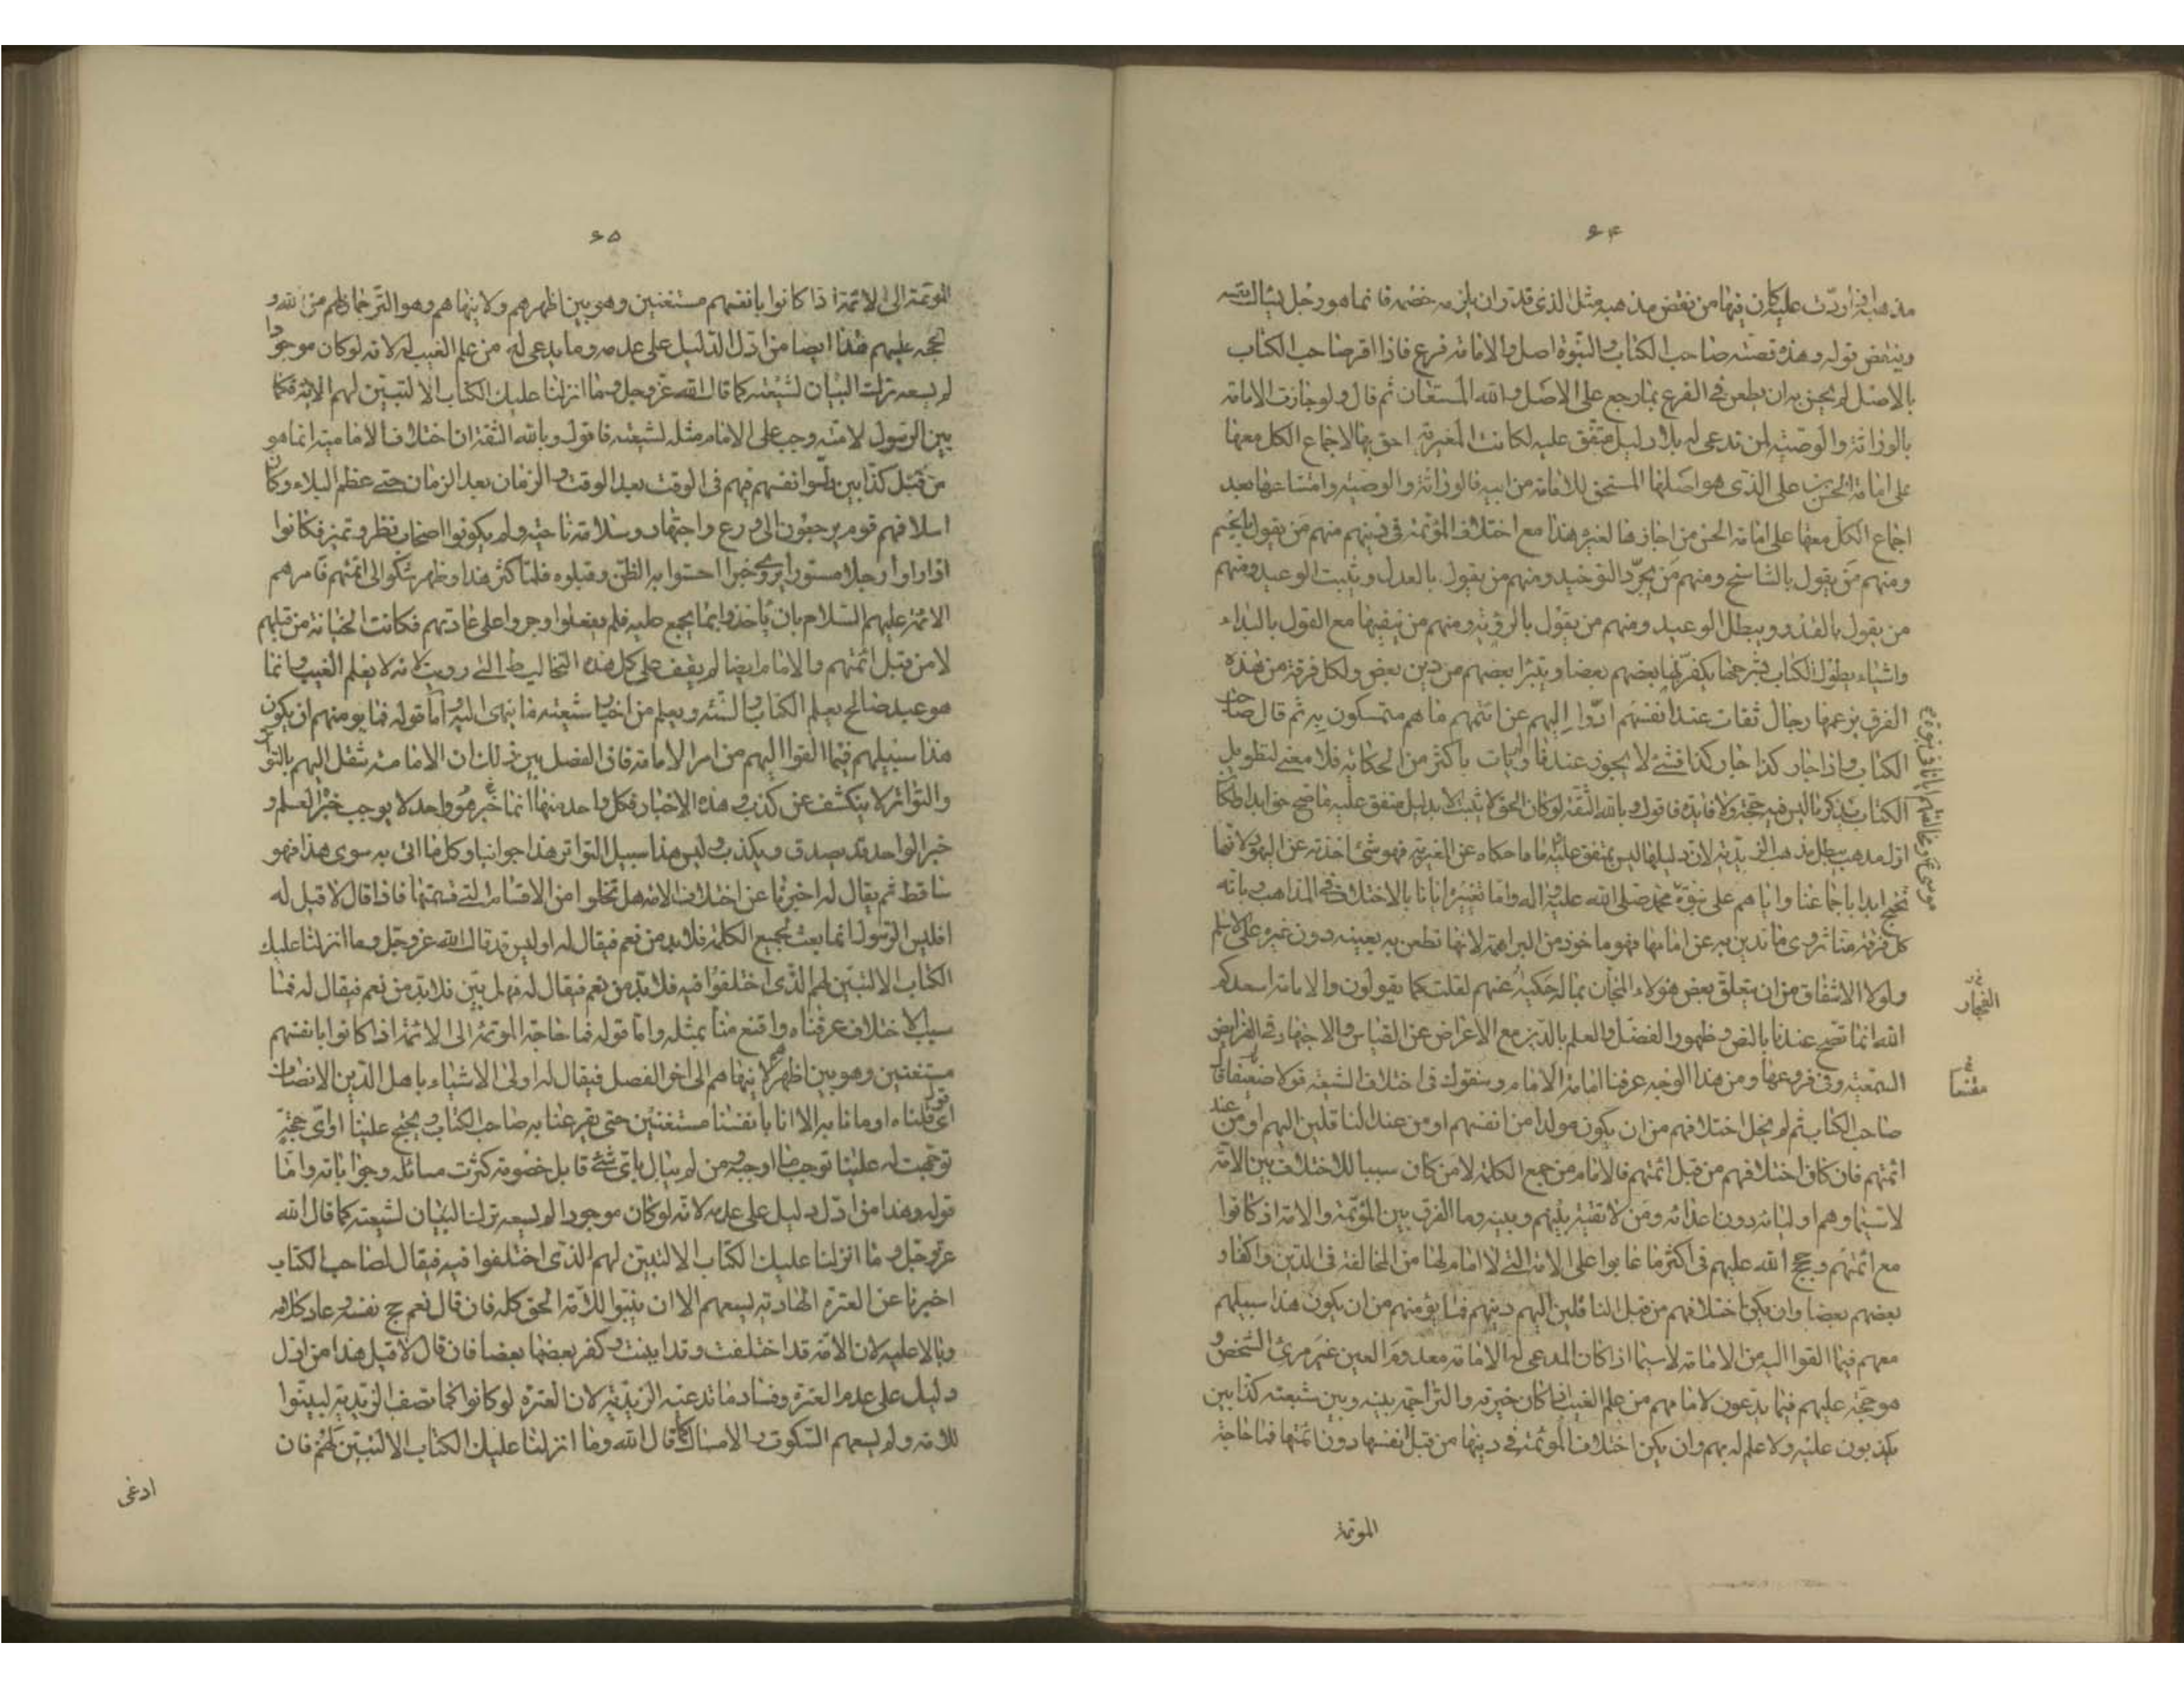 ۶۴
مذهبه اذا ردّت عليه كان فيها من نقض مذهبه مثل الذى قدّر ان يلزمه خصمه فانما هو رجل يسأل نفسه
وينقض قوله وهذه قصّته صاحب الكتاب والنبوّة اصل والامامة فرع فاذا اقر صاحب الكتاب
بالاصل لم يحسن به ان يطعن فى الفرع بما رجع على الاصل والله المستعان ثم قال ولو جازت الامامة
بالوراثة والوصيّة لمن تدعى له بلا دليل متفق عليه لكانت المغيرية احق بها لاجماع الكل معها
على امامة الحسن بن على الذى هو اصلها المستحق للامامة من ابيه فالوراثة والوصيّة وامتناعها بعد
اجماع الكل معها على امامة الحسن من اجازها لغيره هذا مع اختلاف المؤتمة فى دينهم منهم من يقول بالجسم
ومنهم من يقول بالتناسخ ومنهم من يجرّد التوحيد ومنهم من يقول بالعدل ويثبت الوعيد ومنهم
من يقول بالقدر ويبطل الوعيد ومنهم من يقول بالرؤية ومنهم من ينفيها مع القول بالبداء
واشياء يطول الكتاب بشرحها يكفر بها بعضهم بعضا ويتبرأ بعضهم من دين بعض ولكل فرقة من هذه
الفرق بزعمها رجال ثقات عند انفسهم ادّوا اليهم عن ائمتهم ما هم متمسكون به ثم قال صاحب
الكتاب واذا جاز كذا جاز كذا فشئ لا يجوز عندنا ولم يات باكثر من الحكاية فلا معنى لتطويل
الكتاب بذكر ما ليس فيه حجّة ولا فايدة فاقول وبالله الثقة لو كان الحق لا يثبت الا بدليل متفق عليه ما صح حق ابدا ولكان
اول مذهب يبطل مذهب الزيدية لان دليلها ليس بمتفق عليه فاما ما حكاه عن المغيرية فهو شئ اخذته عن اليهود لانها
تحتج ابدا باجماعنا واياهم على نبوّة
موسى ع ومخالفتهم ايانا فى نبوة
محمد صلى الله عليه واله واما تعييره ايانا بالاختلاف فى المذاهب وبانه
كل فرقة منا تروى ما تدين به عن امامها فهو ماخوذ من البراهمة لانها تطعن به بعينه دون غيره على الاسلام
ولولا الاشفاق من ان يتعلق بعض هؤلاء المجان بما احكيه عنهم لقلت كما يقولون والامامة اسعدكم
الفجار
الله انما تصح عندنا بالنص وظهور الفضل والعلم بالدين مع الاعراض عن القياس والاجتهاد فى الفرايض
السمعيّة وفى فروعها ومن هذا الوجه عرفنا امامة الامام وسنقول فى اختلاف الشيعة قولا
مقنعا
قال
صاحب الكتاب ثم لم يخل اختلافهم من ان يكون مولدا من انفسهم او من عند الناقلين اليهم او من عند
ائمتهم فان كان اختلافهم من قبل ائمتهم فالامام من جمع الكلمة لا من كان سببا للاختلاف بين الامّة
لا سيّما وهم اوليائه دون اعدائه ومن لا تقيّة بينهم وبينه وما الفرق بين المؤتمة والامة اذ كانوا
مع ائمتهم وحجج الله عليهم فى اكثر ما عابوا على الامّة التى لا امام لها من المخالفة فى الدين واكفار
بعضهم بعضا وان يكن اختلافهم من قبل الناقلين اليهم دينهم فما يؤمنهم من ان يكون هذا سبيلهم
معهم فيما القوا اليه من الامامة لا سيما اذا كان المدعى له الامامة معدوم العين غير مرئ الشخص و
هو حجّة عليهم فيما يدّعون لامامهم من علم الغيب اذا كان خيرته والتراجمة بينه وبين شيعته كذابين
يكذبون عليه ولا علم له بهم وان يكن اختلاف المؤتمة فى دينها من قبل انفسها دون ائمتها فما حاجة
الموتمة
۶۵
الموتمة الى الائمة اذا كانوا بانفسهم مستغنين وهو بين اظهرهم ولا ينهاهم وهو الترجمان لهم من الله و
الحجة عليهم هذا ايضا من ادلّ الدّليل على عدمه وما يدعى له من علم الغيب له لانه لو كان موجودا
لم يسعه ترك البيان لشيعته كما قال الله عزّ وجل وما انزلنا عليك الكتاب الا لتبيّن لهم الاية فكما
بيّن الرسول لامته وجب على الامام مثله لشيعته فاقول وبالله الثقة ان اختلاف الامامية انما هو
من قبل كذابين دلّسوا انفسهم فيهم فى الوقت بعد الوقت والزمان بعد الزمان حتى عظم البلاء وكان
اسلافهم قوم يرجعون الى ورع واجتهاد وسلامة ناحية ولم يكونوا اصحاب نظر وتميز فكانوا
اذا راوا رجلا مستورا يروى خبرا احسنوا به الظن وقبلوه فلما كثر هذا وظهر شكوا الى ائمتهم فامرهم
الائمة عليهم السلام بان ياخذوا بما يجمع عليه فلم يفعلوا وجروا على عادتهم فكانت الخيانة من قبلهم
لا من قبل ائمتهم والامام ايضا لم يقف على كل هذه التخاليط التى رويت لانه لا يعلم الغيب وانما
هو عبد صالح يعلم الكتاب والسنّة ويعلم من اخبار شيعته ما ينهى اليه واما قوله فما يومنهم ان يكون
هذا سبيلهم فيما القوا اليهم من امر الامامة فان الفصل بين ذلك ان الامامة تنقل اليهم بالتواتر
والتواتر لا ينكشف عن كذب وهذه الاخبار فكل واحد منها انما خبر واحد لا يوجب خبره العلم و
خبر الواحد قد يصدق ويكذب وليس هذا سبيل التواتر هذا جوابنا وكل ما اتى به سوى هذا فهو
ساقط ثم يقال له اخبرنا عن اختلاف الامة هل تخلوا من الاقسام التى قسمتها فاذا قال لا قيل له
افليس الرسول انما بعث لجميع الكلمة فلا بد من نعم فيقال له اوليس قد قال الله عز وجل وما انزلنا عليك
الكتاب الا لتبيّن لهم الذى اختلفوا فيه فلا بد من نعم فيقال له فهل بيّن فلا بد من نعم فيقال له فما
سبب الاختلاف عرفناه واقنع منا بمثله واما قوله فما حاجة الموتمة الى الائمة اذا كانوا بانفسهم
مستغنين وهو بين اظهرهم لا ينهاهم الى اخر الفصل فيقال له اولى الاشياء باهل الدّين الانصاف
اى قول قلناه او مانا به الا انا بانفسنا مستغنين حتى يقرعنا به صاحب الكتاب ويحتج علينا او اىّ حجّة
توجّهت له علينا توجب ما اوجبه ومن لم يبال باىّ شئ قابل خصومه كثرت مسائله وجواباته وامّا
قوله وهذا من ادلّ دليل على عدمه لانّه لو كان موجودا لم يسعه ترك البيان لشيعته كما قال الله
عزّ وجلّ وما انزلنا عليك الكتاب الا لتبيّن لهم الذى اختلفوا فيه فيقال لصاحب الكتاب
اخبرنا عن العترة الهادية يسعهم الا ان يبيّنوا للامّة الحق كله فان قال نعم حج نفسه وعاد كلامه
وبالا عليه لان الامّة قد اختلفت وقد اينبت وكفر بعضها بعضا فان قال لا قيل هذا من ادل
دليل على عدم العترة وفساد ما تدعيه الزيديّة لان العترة لو كانوا كما تصف الزيدية لبيّنوا
للامة ولم يسعهم السكوت والامساك كما قال الله وما انزلنا عليك الكتاب الا لتبيّن لهم فان
ادعى